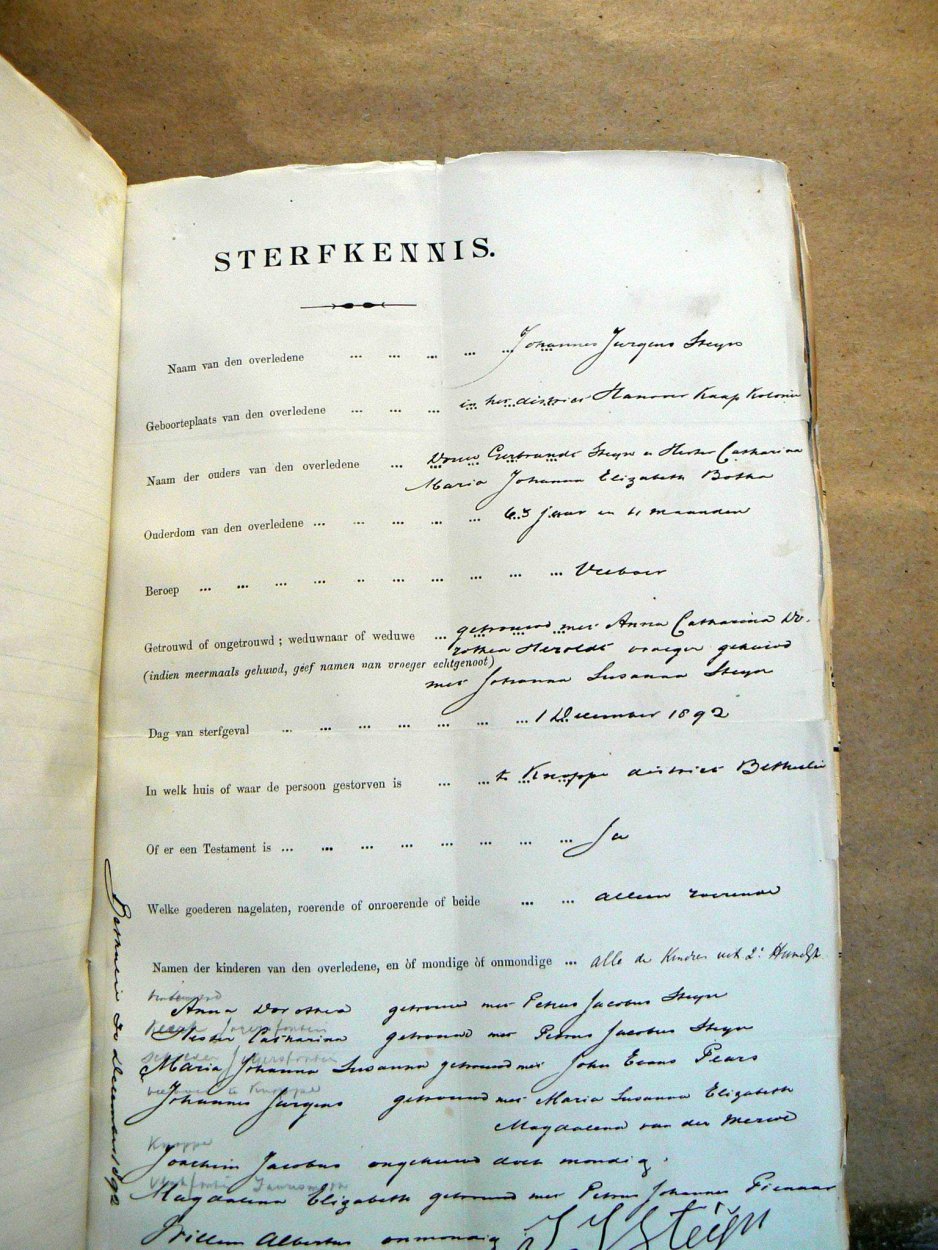 STERFKENNIS.
Naam van den overledene ... ... ... ... ... Johannes Jurgens Steyn
Geboorteplaats van den overledene ... ... ... in het district Hanover Kaap Kolonie
Naam der ouders van den overledene ... Douw Gerbrandt Steyn en Hester Catharina
Maria Johanna Elizabeth Botha
Ouderdom van den overledene ... ... ... ... ... 63 jaar en maanden
Beroep ... ... ... ... ... ... ... ... ... ... Veeboer
Getrouwd of ongetrouwd ; weduwnaar of weduwe ... getrouwd met Anna Catharina Do-
rothea Heroldt vroeger gehuwd
(indien meermaals gehuwd, geef namen van vroeger echtgenoot)
met Johanna Susanna Steyn
Dag van sterfgeval ... ... ... ... ... ... ... 1 December 1892
In welk huis of waar de persoon gestorven is ... ... te Knoppe district Bethulie
Of er een Testament is ... ... ... ... ... ... ... ... Ja
Welke goederen nagelaten, roerende of onroerende of beide ... ... alleen roerende
Namen der kinderen van den overledene, en òf mondige òf onmondige ... alle de Kinders uit 2e
Anna Dorothea getrouwd met Petrus Jacobus Steyn
Hester Catharina getrouwd met Petrus Jacobus Steyn
Maria Johanna Susanna getrouwd met John Evans Pears
veeboer te Knoppe
Johannes Jurgens getrouwd met Maria Susanna Elizabeth
Magdalena van der Merwe
Knoppe
Joachim Jacobus ongehuwd doch mondig.
Magdalena Elizabeth getrouwd met Petrus Johannes Pienaar
Willem Albertus onmondig
J J Steijn
Bethulie December 1892